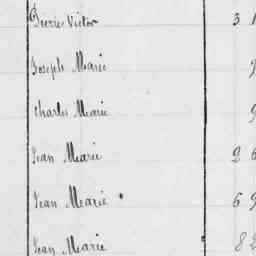 Pierre Victor 3 1
Joseph Marie 9
Charles Marie 9
Jean Marie 2 6
Jean Marie 6 9
Jean Marie 8 2